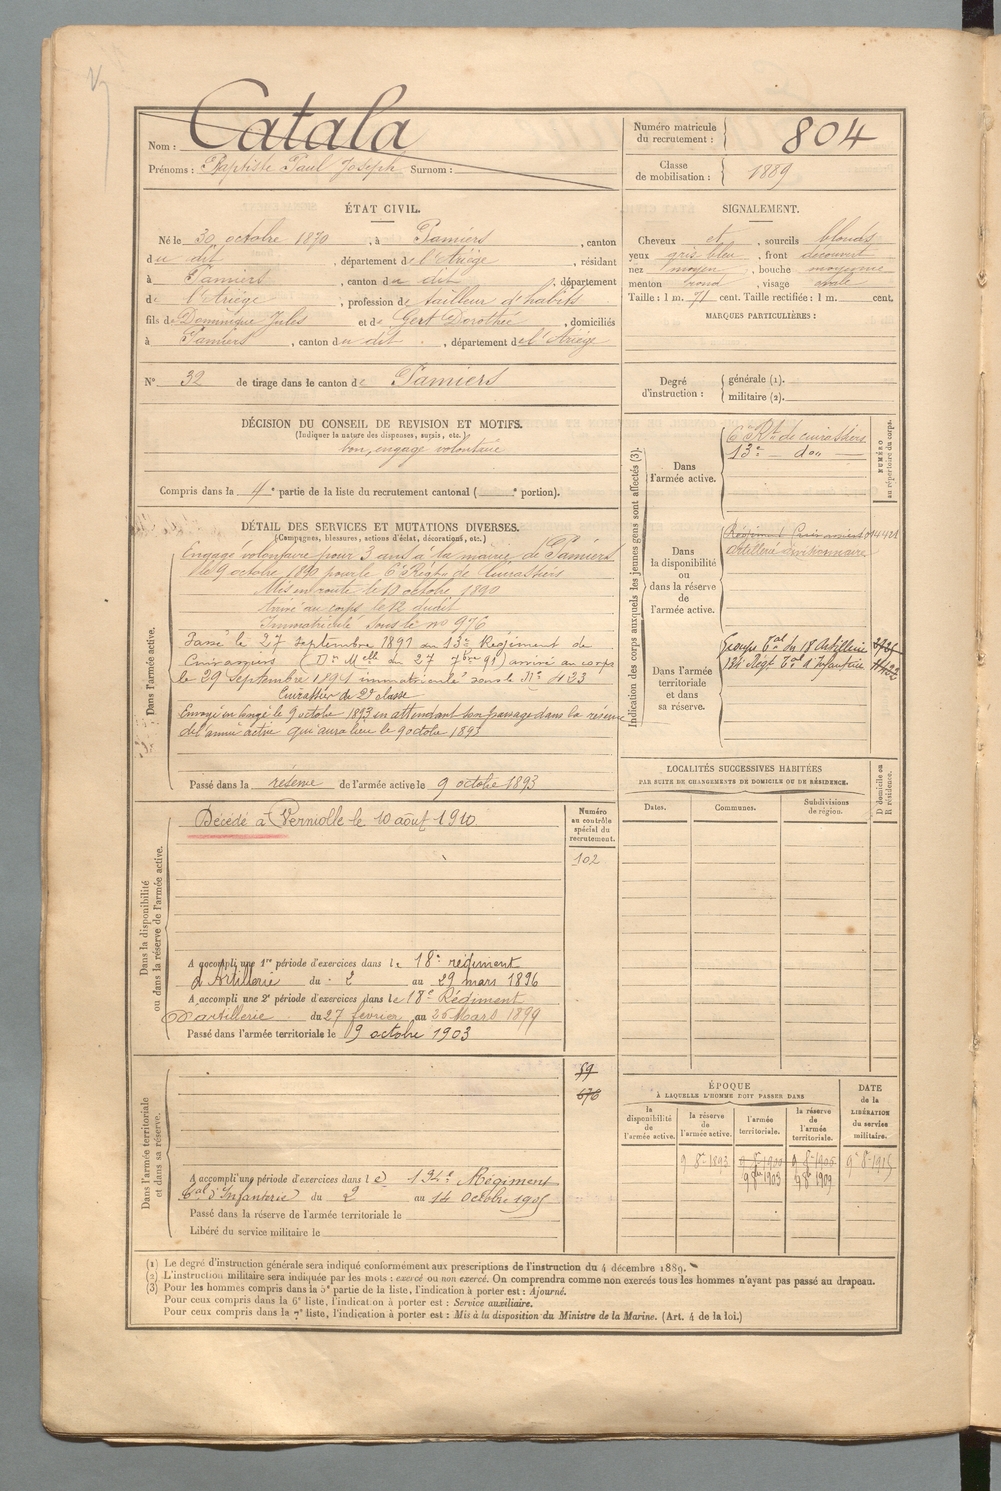 Nom : Catala
Prénoms : Baptiste Paul Joseph Surnom :
Numéro matricule
du recrutement : 804
Classe
de mobilisation : 1889
ÉTAT CIVIL.
Né le 30 octobre 1870, à Pamiers, canton
du dit, département de l'Ariège, résidant
à Pamiers, canton du dit, département
de l'Ariège, profession de tailleur d'habits
fils de Dominique Jules et de Gert Dorothée, domiciliés
à Pamiers, canton du dit, département de l'Ariège
SIGNALEMENT.
Cheveux et, sourcils blonds
yeux gris bleu, front découvert
nez moyen, bouche moyenne
menton rond, visage ovale
Taille : 1 m. 71 cent. Taille rectifiée : 1 m. cent.
MARQUES PARTICULIÈRES :
N° 32 de tirage dans le canton de Pamiers
Degré
d'instruction :
générale (1).
militaire (2).
DÉCISION DU CONSEIL DE REVISION ET MOTIFS.
(Indiquer la nature des dispenses, sursis, etc.)
bon, engagé volontaire
Compris dans la 4e partie de la liste du recrutement cantonal ( e portion).
DÉTAIL DES SERVICES ET MUTATIONS DIVERSES.
(Campagnes, blessures, actions d'éclat, décorations, etc.)
Dans l'armée active.
Engagé volontaire pour 3 ans à la mairie de Pamiers
le 9 octobre 1890 pour le 6e Régt de Cuirassiers
Mis en route le 10 octobre 1890
Arrivé au corps le 12 dudit
Immatriculé sous le no 976
Passé le 27 septembre 1891 au 13e Régiment de
Cuirassiers (Don Mlle du 27 7bre 91) arrivé au corps
le 29 septembre 1891 immatriculé sous le No 423
Cuirassier de 2e classe
Envoyé en congé le 9 octobre 1893 en attendant son passage dans la réserve
de l'armée active qui aura lieu le 9 octobre 1893
Passé dans la réserve de l'armée active le 9 octobre 1893
Indication des corps auxquels les jeunes gens sont affectés (3).
Dans
l'armée active.
6e Rgt de cuirassiers
13e do
NUMÉRO
au répertoire du corps.
Dans
la disponibilité
ou
dans la réserve de
l'armée active.
Artillerie divisionnaire
Dans l'armée
territoriale
et dans
sa réserve.
Groupe tal du 18e Artillerie
134e Régt tal d'Infanterie
LOCALITÉS SUCCESSIVES HABITÉES
PAR SUITE DE CHANGEMENTS DE DOMICILE OU DE RÉSIDENCE.
Dates.
Communes.
Subdivisions
de région.
D domicile ou
R résidence.
Dans la disponibilité
ou dans la réserve de l'armée active.
Décédé à Verniolle le 10 août 1910
Numéro
au contrôle
spécial du
recrutement.
102
A accompli une 1re période d'exercices dans le 18e régiment
d'Artillerie du 2 au 29 mars 1896
A accompli une 2e période d'exercices dans le 18e Régiment
D'artillerie du 27 février au 26 Mars 1899
Passé dans l'armée territoriale le 9 octobre 1903
Dans l'armée territoriale
et dans sa réserve.
59
676
A accompli une période d'exercices dans le 134e Régiment
tal d'Infanterie du 2 au 14 Octobre 1905
Passé dans la réserve de l'armée territoriale le
Libéré du service militaire le
ÉPOQUE
À LAQUELLE L'HOMME DOIT PASSER DANS
la
disponibilité
de
l'armée active.
la réserve
de
l'armée active.
l'armée
territoriale.
la réserve
de
l'armée
territoriale.
DATE
de la
LIBÉRATION
du service
militaire.
9 8re 1893
9 8re 1903
9 8re 1909
9 8re 1915
(1) Le degré d'instruction générale sera indiqué conformément aux prescriptions de l'instruction du 4 décembre 1889.
(2) L'instruction militaire sera indiquée par les mots : exercé ou non exercé. On comprendra comme non exercés tous les hommes n'ayant pas passé au drapeau.
(3) Pour les hommes compris dans la 5e partie de la liste, l'indication à porter est : Ajourné.
Pour ceux compris dans la 6e liste, l'indication à porter est : Service auxiliaire.
Pour ceux compris dans la 7e liste, l'indication à porter est : Mis à la disposition du Ministre de la Marine. (Art. 4 de la loi.)